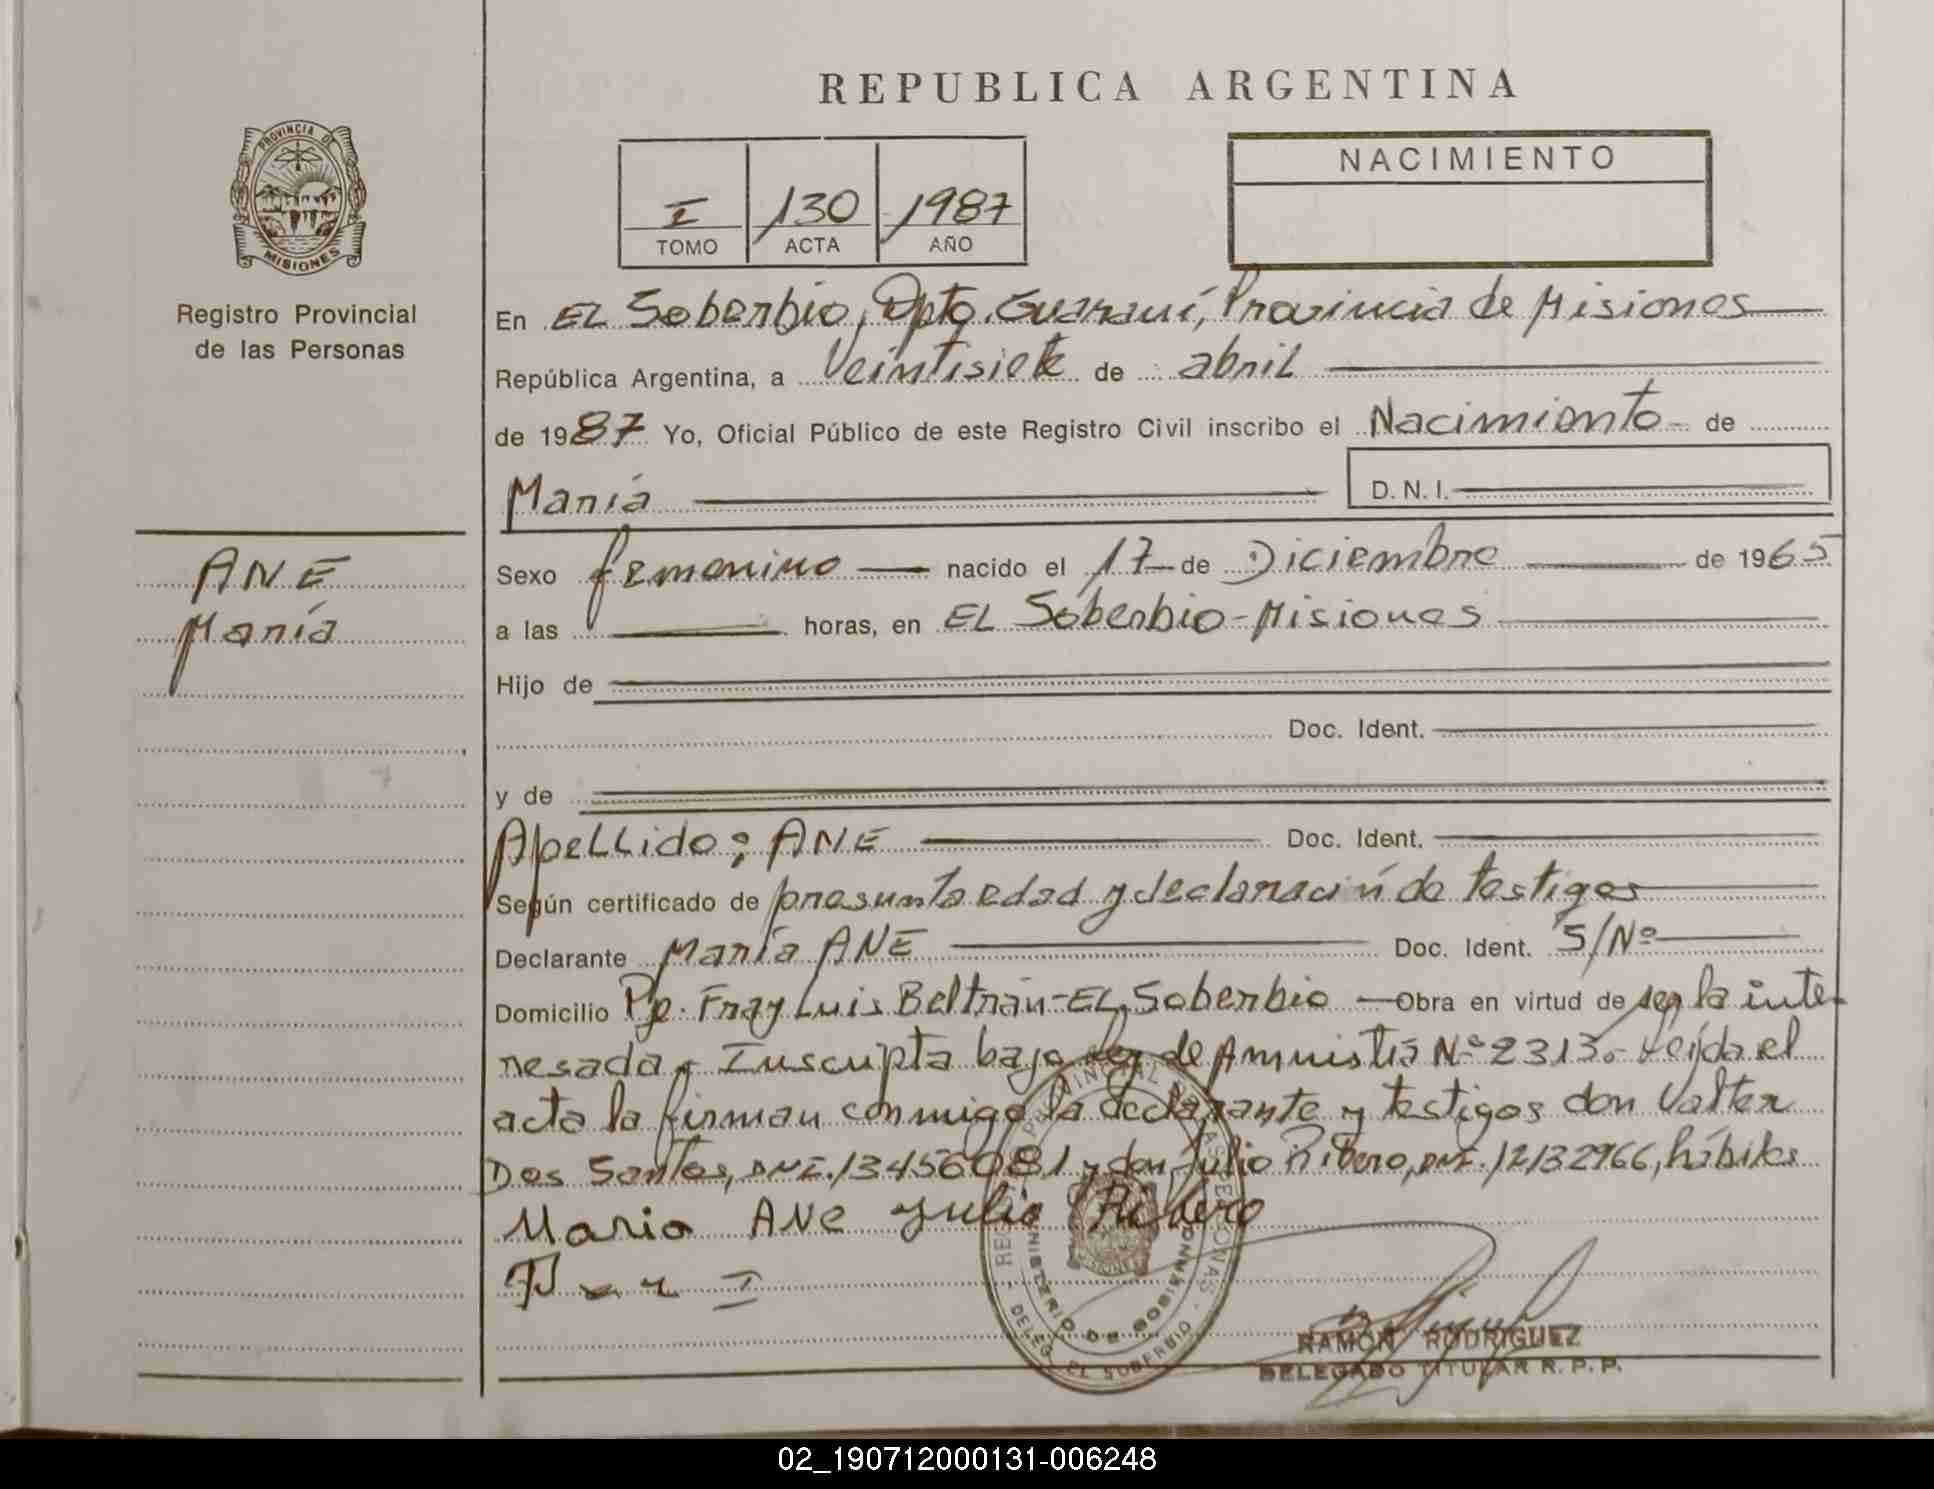 REPUBLICA ARGENTINA
PROVINCIA DE
MISIONES
Registro Provincial
de las Personas
I 130 1987
TOMO ACTA AÑO
NACIMIENTO
En EL Soberbio, Dpto. Guaraní, Provincia de Misiones
República Argentina, a Veintisiete de abril
de 1987 Yo, Oficial Público de este Registro Civil inscribo el Nacimiento de
María D. N. I.
ANE
María
Sexo femenino nacido el 17 de Diciembre de 1965
a las horas, en EL Soberbio-Misiones
Hijo de
Doc. Ident.
y de
Apellido: ANE Doc. Ident.
Según certificado de presunta edad y declaración de testigos
Declarante María ANE Doc. Ident. S/Nº
Domicilio Pje. Fray Luis Beltrán-EL Soberbio Obra en virtud de ser la inte-
resada. Inscripta bajo ley de Amnistía Nº 2313. Leída el
acta la firman conmigo la declarante y testigos don Valter
Dos Santos, DNI. 13456081 y don Julio Ribero, DNI. 12132966, hábiles
Maria ANE Julio Ribero
REGISTRO PROVINCIAL DE LAS PERSONAS
MINISTERIO DE GOBIERNO
DELEG. EL SOBERBIO
RAMON RODRIGUEZ
DELEGADO TITULAR R. P. P.
02_190712000131-006248